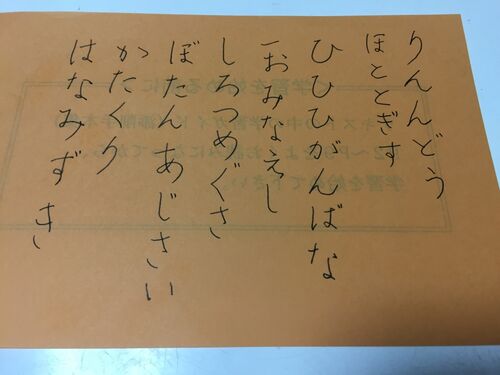 りんんどう
ほととぎす
ひひひがんばな
おみなえし
しろつめぐさ
ぼたんあじさい
かたくり
はなみずき